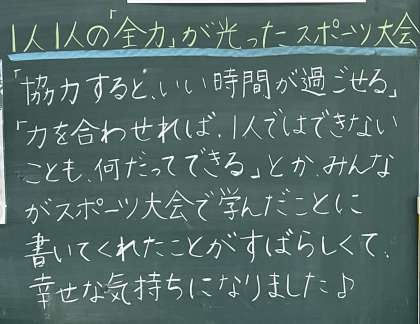 1人1人の「全力」が光ったスポーツ大会
「協力すると、いい時間が過ごせる」
「力を合わせれば、1人ではできない
ことも、何だってできる」とか、みんな
がスポーツ大会で学んだことに
書いてくれたことがすばらしくて、
幸せな気持ちになりました♪